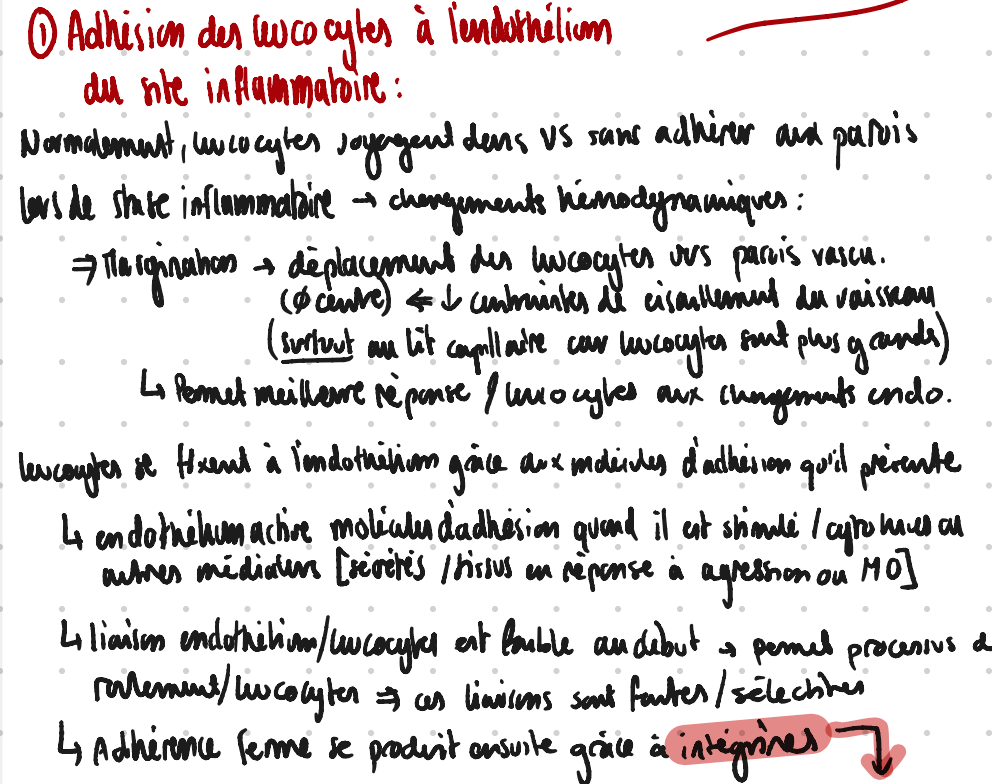 ① Adhésion des leucocytes à l'endothélium
du site inflammatoire :
Normalement, leucocytes voyagent dans VS sans adhérer aux parois
Lors de stase inflammatoire → changements hémodynamiques :
⇒ Margination → déplacement des leucocytes vers parois vascu.
(∅ centre) ⇐ ↓ contraintes de cisaillement du vaisseau
(surtout au lit capillaire car leucocytes sont plus grands)
↳ Permet meilleure réponse / leucocytes aux changements endo.
leucocytes se fixent à l'endothélium grâce aux molécules d'adhésion qu'il présente
↳ endothélium active molécules d'adhésion quand il est stimulé / cytokines ou
autres médiateurs [sécrétés / tissus en réponse à agression ou MO]
↳ liaison endothélium/leucocytes est faible au début → permet processus d
roulement/leucocytes ⇒ ces liaisons sont faites / sélectines
↳ Adhérence ferme se produit ensuite grâce à intégrines